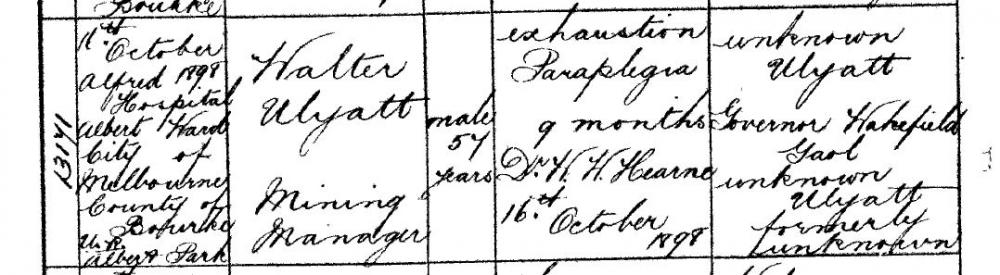 Bourke
13141
16th
October
Alfred 1898
Hospital
Albert Ward
City of
Melbourne
County of
Bourke
U.R.
Albert Park
Walter
Ulyatt
Mining
Manager
male
57
years
exhaustion
Paraplegia
9 months
Dr. H. H. Hearne
16th October
1898
unknown
Ulyatt
Governor Wakefield
Gaol
unknown
Ulyatt
formerly
unknown